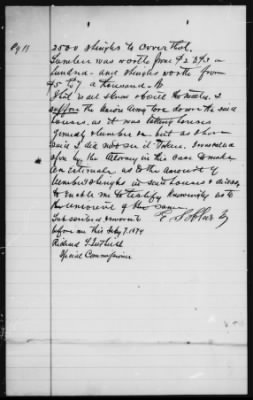 Pg 13
2500 shingles to cover that.
Lumber was worth from $2 to $3 a
hundred - and shingles worth from
a thousand.
that is all I know about the matter. I
suppose the Union Army tore down the said
houses, as it was taking houses
generally & lumber &c. but as above
said I did not see it taken. I was called
upon by the Attorney in this case to make
an estimate as to the amount of
lumber & shingles in said houses
to enable me to testify knowingly as to
the amount of the same.
Subscribed & sworn to
before me this July 7. 1874
Richard
Special Commissioner